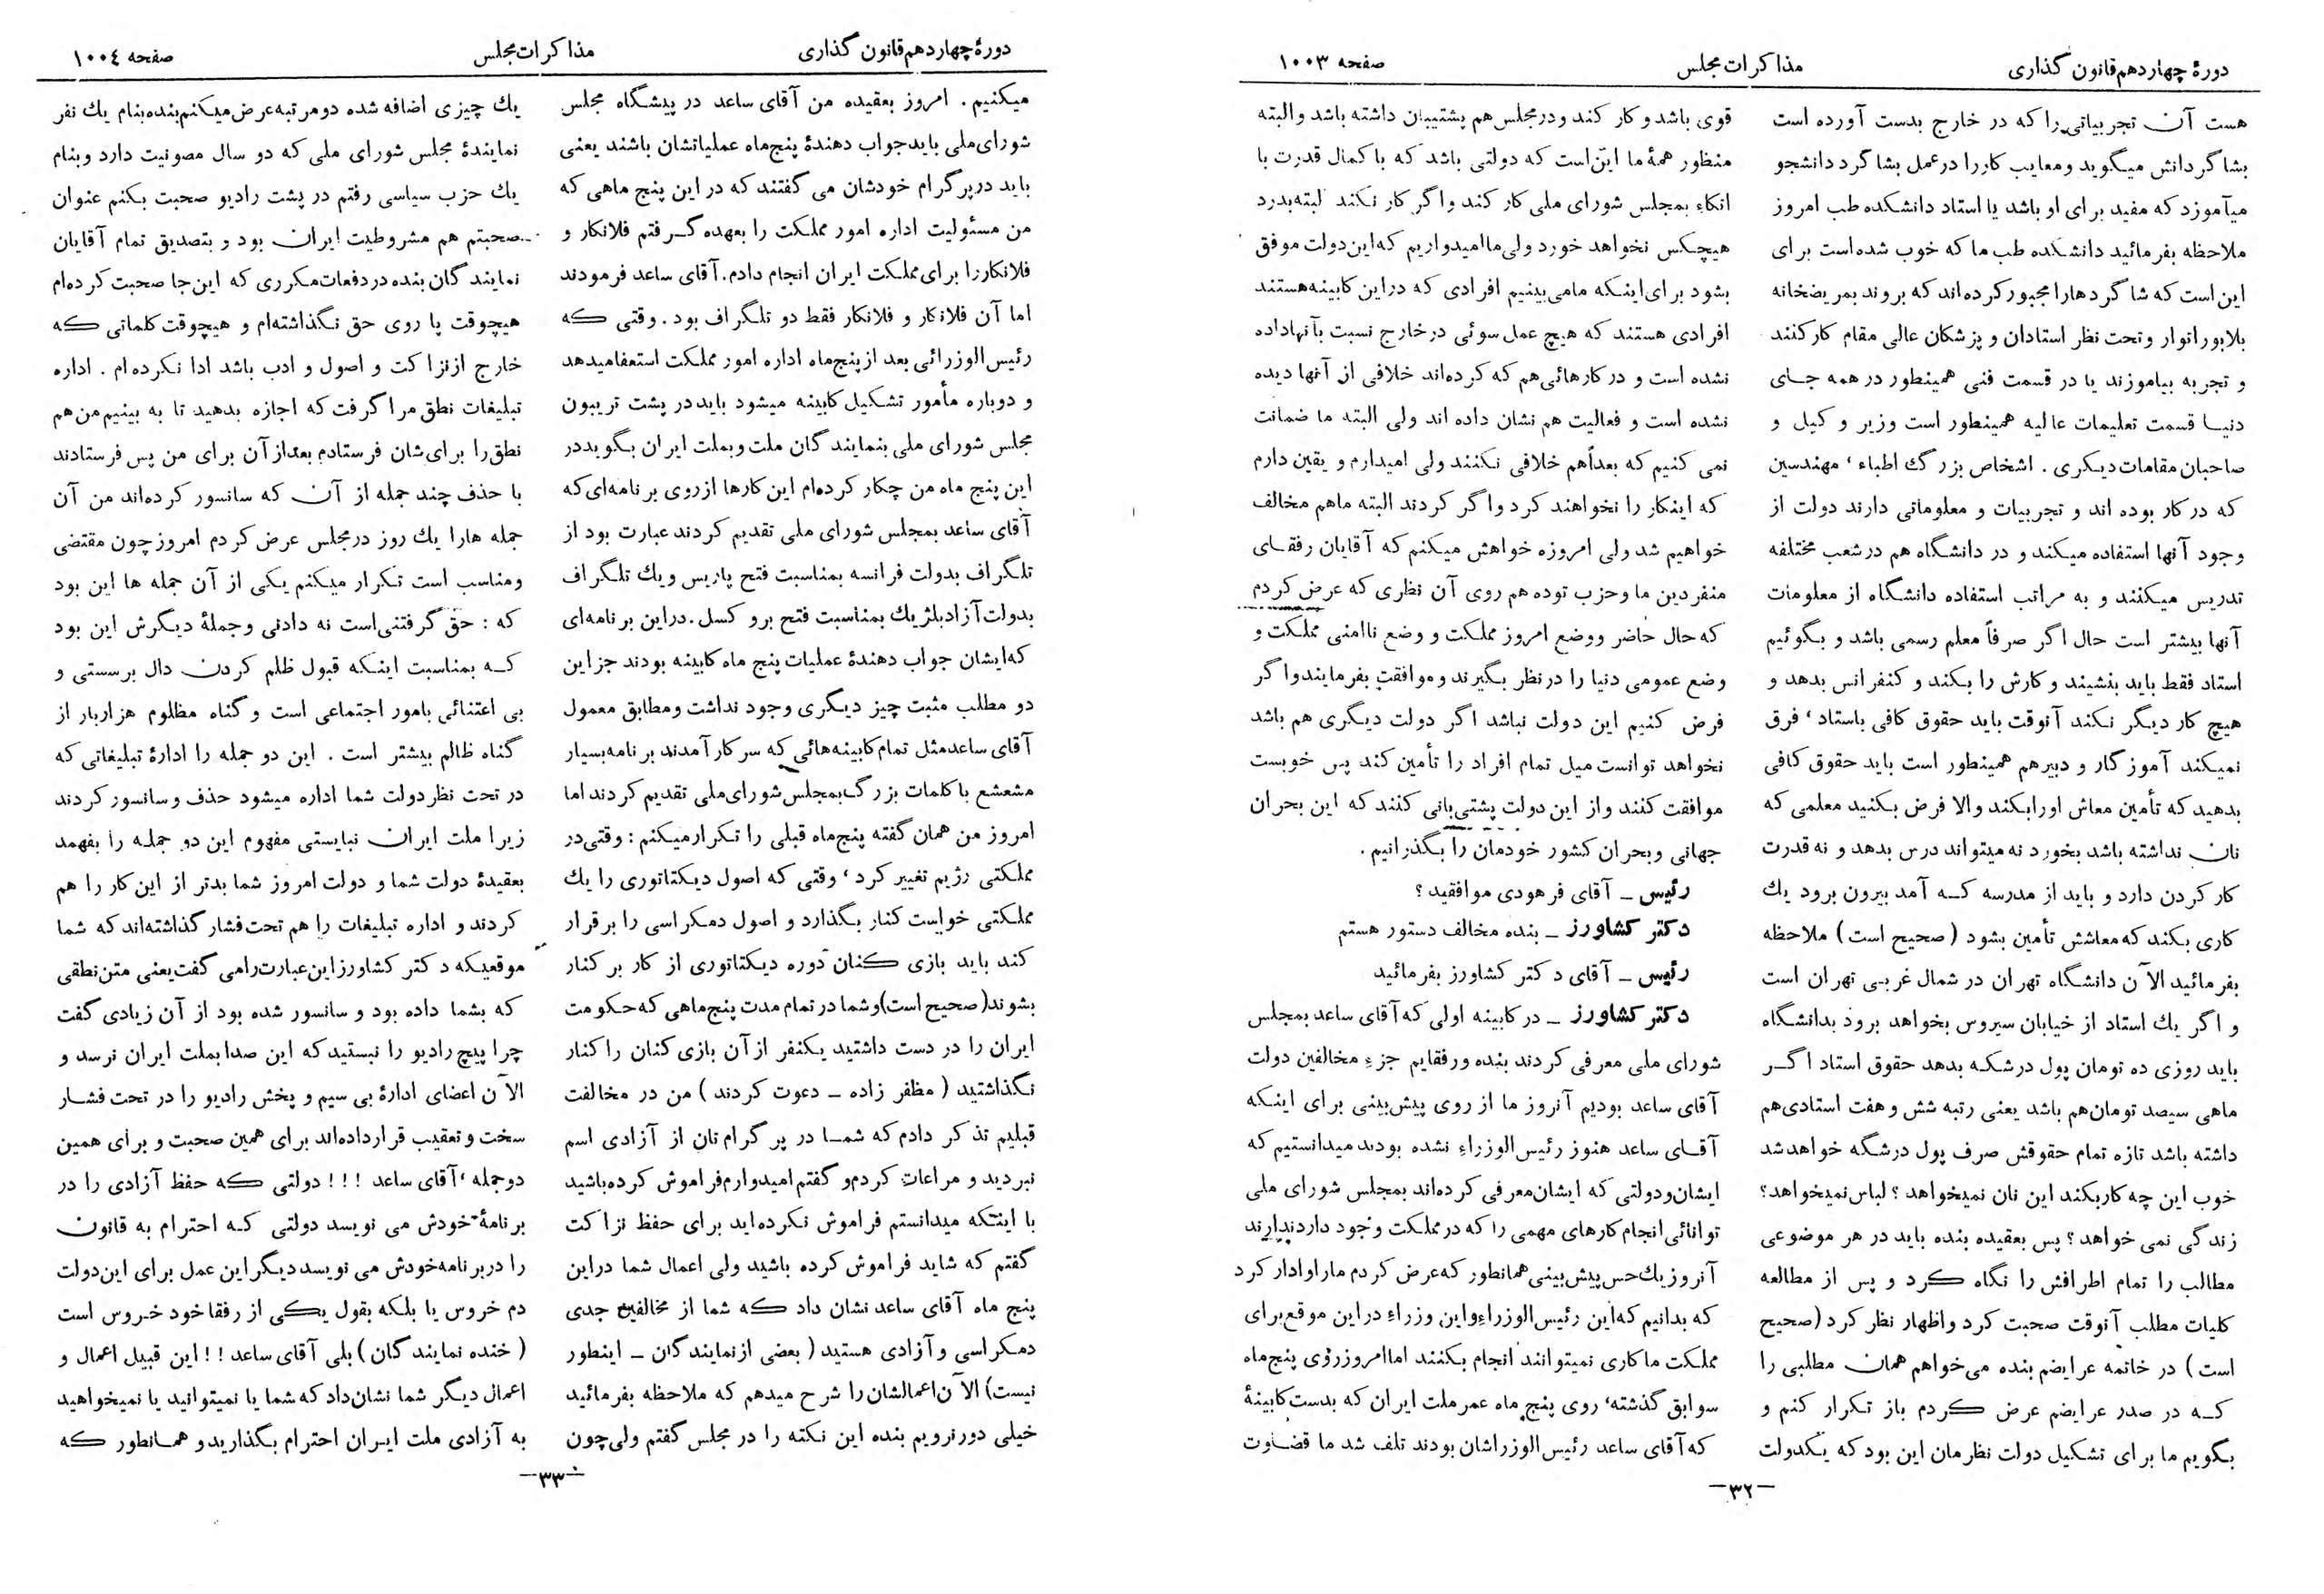 دورهٔ چهاردهم قانون گذاری
مذاکرات مجلس
صفحه ۱۰۰۳
هست آن تجربیاتی را که در خارج بدست آورده است
بشاگردانش میگوید و معایب کار را در عمل بشاگرد دانشجو
میآموزد که مفید برای او باشد یا استاد دانشکده طب امروز
ملاحظه بفرمائید دانشکده طب ما که خوب شده است برای
این است که شاگردها را مجبور کرده‌اند که بروند بمریضخانه
بلابوراتوار و تحت نظر استادان و پزشکان عالی مقام کار کنند
و تجربه بیاموزند یا در قسمت فنی همینطور در همه جای
دنیا قسمت تعلیمات عالیه همینطور است وزیر و کیل و
صاحبان مقامات دیگری . اشخاص بزرگ اطباء ، مهندسین
که در کار بوده اند و تجربیات و معلوماتی دارند دولت از
وجود آنها استفاده میکند و در دانشگاه هم در شعب مختلفه
تدریس میکنند و به مراتب استفاده دانشگاه از معلومات
آنها بیشتر است حال اگر صرفاً معلم رسمی باشد و بگوئیم
استاد فقط باید بنشیند و کارش را بکند و کنفرانس بدهد و
هیچ کار دیگر نکند آنوقت باید حقوق کافی باستاد ، فرق
نمیکند آموزگار و دبیر هم همینطور است باید حقوق کافی
بدهید که تأمین معاش او را بکند والا فرض بکنید معلمی که
نان نداشته باشد بخورد نه میتواند درس بدهد و نه قدرت
کار کردن دارد و باید از مدرسه که آمد بیرون برود یك
کاری بکند که معاشش تأمین بشود ( صحیح است ) ملاحظه
بفرمائید الآن دانشگاه تهران در شمال غربی تهران است
و اگر یك استاد از خیابان سیروس بخواهد برود بدانشگاه
باید روزی ده تومان پول درشکه بدهد حقوق استاد اگر
ماهی سیصد تومان هم باشد یعنی رتبه شش و هفت استادی هم
داشته باشد تازه تمام حقوقش صرف پول درشگه خواهد شد
خوب این چه کار بکند این نان نمیخواهد ؟ لباس نمیخواهد؟
زندگی نمی خواهد ؟ پس بعقیده بنده باید در هر موضوعی
مطالب را تمام اطرافش را نگاه کرد و پس از مطالعه
کلیات مطلب آنوقت صحبت کرد و اظهار نظر کرد (صحیح
است ) در خاتمه عرایضم بنده می‌خواهم همان مطلبی را
که در صدر عرایضم عرض کردم باز تکرار کنم و
بگویم ما برای تشکیل دولت نظرمان این بود که یکدولت
قوی باشد و کار کند و در مجلس هم پشتیبان داشته باشد و البته
منظور همهٔ ما این است که دولتی باشد که با کمال قدرت با
اتکاء بمجلس شورای ملی کار کند و اگر کار نکند البته بدرد
هیچکس نخواهد خورد ولی ما امیدواریم که این دولت موفق
بشود برای اینکه ما می‌بینیم افرادی که در این کابینه هستند
افرادی هستند که هیچ عمل سوئی در خارج نسبت بآنها داده
نشده است و در کارهائی هم که کرده‌اند خلافی از آنها دیده
نشده است و فعالیت هم نشان داده اند ولی البته ما ضمانت
نمی کنیم که بعداً هم خلافی نکنند ولی امیدارم و یقین دارم
که اینکار را نخواهند کرد و اگر کردند البته ما هم مخالف
خواهیم شد ولی امروزه خواهش میکنم که آقایان رفقای
منفردین ما و حزب توده هم روی آن نظری که عرض کردم
که حال حاضر و وضع امروز مملکت و وضع ناامنی مملکت و
وضع عمومی دنیا را در نظر بگیرند و موافقت بفرمایند و اگر
فرض کنیم این دولت نباشد اگر دولت دیگری هم باشد
نخواهد توانست میل تمام افراد را تأمین کند پس خوبست
موافقت کنند و از این دولت پشتی‌بانی کنند که این بحران
جهانی و بحران کشور خودمان را بگذرانیم .
رئیس ـ آقای فرهودی موافقید ؟
دکتر کشاورز ـ بنده مخالف دستور هستم
رئیس ـ آقای دکتر کشاورز بفرمائید
دکتر کشاورز ـ در کابینه اولی که آقای ساعد بمجلس
شورای ملی معرفی کردند بنده و رفقایم جزء مخالفین دولت
آقای ساعد بودیم آنروز ما از روی پیش‌بینی برای اینکه
آقای ساعد هنوز رئیس الوزراء نشده بودند میدانستیم که
ایشان و دولتی که ایشان معرفی کرده‌اند بمجلس شورای ملی
توانائی انجام کارهای مهمی را که در مملکت وجود دارد ندارند
آنروز یك حس پیش‌بینی همانطور که عرض کردم ما را وادار کرد
که بدانیم که این رئیس الوزراء و این وزراء در این موقع برای
مملکت ما کاری نمیتوانند انجام بکنند اما امروز رؤی پنج ماه
سوابق گذشته، روی پنج ماه عمر ملت ایران که بدست کابینهٔ
که آقای ساعد رئیس الوزراشان بودند تلف شد ما قضاوت
ـ۳۲ـ
دورهٔ چهاردهم قانون گذاری
مذاکرات مجلس
صفحه ۱۰۰٤
میکنیم . امروز بعقیده من آقای ساعد در پیشگاه مجلس
شورای ملی باید جواب دهندهٔ پنج ماه عملیاتشان باشند یعنی
باید در پرگرام خودشان می گفتند که در این پنج ماهی که
من مسئولیت اداره امور مملکت را بعهده گرفتم فلانکار و
فلانکار را برای مملکت ایران انجام دادم. آقای ساعد فرمودند
اما آن فلانکار و فلانکار فقط دو تلگراف بود . وقتی که
رئیس الوزرائی بعد از پنج ماه اداره امور مملکت استعفا میدهد
و دوباره مأمور تشکیل کابینه میشود باید در پشت تریبون
مجلس شورای ملی بنمایندگان ملت و بملت ایران بگوید در
این پنج ماه من چکار کرده‌ام این کارها از روی برنامه‌ای که
آقای ساعد بمجلس شورای ملی تقدیم کردند عبارت بود از
تلگراف بدولت فرانسه بمناسبت فتح پاریس و یك تلگراف
بدولت آزاد بلژیك بمناسبت فتح بروکسل. در این برنامه‌ای
که ایشان جواب دهندهٔ عملیات پنج ماه کابینه بودند جز این
دو مطلب مثبت چیز دیگری وجود نداشت و مطابق معمول
آقای ساعد مثل تمام کابینه هائی که سر کار آمدند برنامه بسیار
مشعشع با کلمات بزرگ بمجلس شورای ملی تقدیم کردند اما
امروز من همان گفته پنج ماه قبلی را تکرار میکنم : وقتی در
مملکتی رژیم تغییر کرد ، وقتی که اصول دیکتاتوری را یك
مملکتی خواست کنار بگذارد و اصول دمکراسی را برقرار
کند باید بازی کنان دوره دیکتاتوری از کار بر کنار
بشوند( صحیح است) و شما در تمام مدت پنج ماهی که حکومت
ایران را در دست داشتید یکنفر از آن بازی کنان را کنار
نگذاشتید ( مظفر زاده ـ دعوت کردند ) من در مخالفت
قبلیم تذکر دادم که شما در پرگرام تان از آزادی اسم
نبردید و مراعات کردم و گفتم امیدوارم فراموش کرده باشید
با اینکه میدانستم فراموش نکرده اید برای حفظ نزاکت
گفتم که شاید فراموش کرده باشید ولی اعمال شما در این
پنج ماه آقای ساعد نشان داد که شما از مخالفین جدی
دمکراسی و آزادی هستید ( بعضی از نمایندگان ـ اینطور
نیست) الآن اعمالشان را شرح میدهم که ملاحظه بفرمائید
خیلی دور نرویم بنده این نکته را در مجلس گفتم ولی چون
یك چیزی اضافه شده دو مرتبه عرض میکنم بنده بنام یك نفر
نمایندهٔ مجلس شورای ملی که دو سال مصونیت دارد و بنام
یك حزب سیاسی رفتم در پشت رادیو صحبت بکنم عنوان
صحبتم هم مشروطیت ایران بود و بتصدیق تمام آقایان
نمایندگان بنده در دفعات مکرری که این جا صحبت کرده‌ام
هیچوقت پا روی حق نگذاشته‌ام و هیچوقت کلماتی که
خارج از نزاکت و اصول و ادب باشد ادا نکرده ام . اداره
تبلیغات نطق مرا گرفت که اجازه بدهید تا به بینیم من هم
نطق را برای شان فرستادم بعد از آن برای من پس فرستادند
با حذف چند جمله از آن که سانسور کرده‌اند من آن
جمله ها را یك روز در مجلس عرض کردم امروز چون مقتضی
و مناسب است تکرار میکنم یکی از آن جمله ها این بود
که : حق گرفتنی است نه دادنی و جملهٔ دیگرش این بود
که بمناسبت اینکه قبول ظلم کردن دال بر سستی و
بی اعتنائی بامور اجتماعی است و گناه مظلوم هزار بار از
گناه ظالم بیشتر است . این دو جمله را ادارهٔ تبلیغاتی که
در تحت نظر دولت شما اداره میشود حذف و سانسور کردند
زیرا ملت ایران نبایستی مفهوم این دو جمله را بفهمد
بعقیدهٔ دولت شما و دولت امروز شما بدتر از این کار را هم
کردند و اداره تبلیغات را هم تحت فشار گذاشته‌اند که شما
موقعیکه دکتر کشاورز این عبارت را می گفت یعنی متن نطقی
که بشما داده بود و سانسور شده بود از آن زیادی گفت
چرا پیچ رادیو را نبستید که این صدا بملت ایران نرسد و
الآن اعضای ادارهٔ بی سیم و پخش رادیو را در تحت فشار
سخت و تعقیب قرار داده‌اند برای همین صحبت و برای همین
دو جمله ، آقای ساعد ! ! ! دولتی که حفظ آزادی را در
برنامهٔ خودش می نویسد دولتی که احترام به قانون
را در برنامه خودش می نویسد دیگر این عمل برای این دولت
دم خروس یا بلکه بقول یکی از رفقا خود خروس است
( خنده نمایندگان ) بلی آقای ساعد ! ! این قبیل اعمال و
اعمال دیگر شما نشان داد که شما یا نمیتوانید یا نمیخواهید
به آزادی ملت ایران احترام بگذارید و همانطور که
ـ۳۳ـ